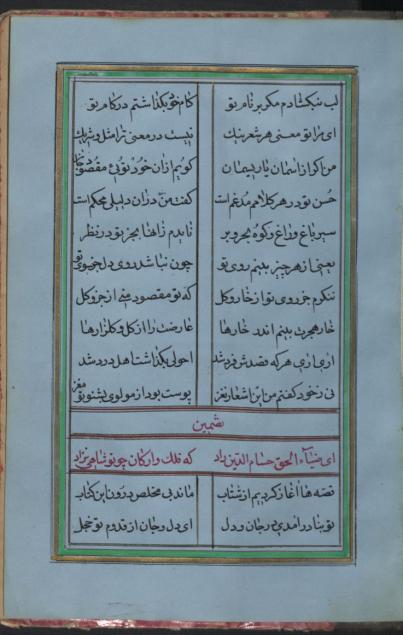 لب نبکشادم مکر بر نام تو کام خود بکذاشتم در کام تو
ای مرا تو معنی هر شعر نیک نیست در معنی ترا مثل و شریک
من اکر از اسمان یا ریسمان کویم ازان خود توی مقصود
حسن تو در هر کلامم مدغم است کفته من دران دلیلی محکم است
سیر باغ و راغ و کوه و بحر و بر ناید م بجز تو در نظر
یعنی از هر چیز بینم روی تو چون نباشد روی دل جز سوی تو
ننکرم جز روی تو از خار و کل که تو مقصود منی از جزو کل
خار هم چون بینم اندر خارها عارضت را از کل و کلزارها
اری اری هر که قصدش فرد شد احولی بکذاشت اهل درد شد
نی ز خود کفتم من این اشعار نغز پوست بود از مولوی بشنو تو مغز
تضمین
ای ضیاء الحق حسام الدین راد که فلک و ارکان چو تو شاهی نزاد
قصه ها اغاز کردیم از شتاب ماند بی مخلص درون این کتاب
تو بنادر امدی در جان و دل ای دل و جان از قدوم تو خجل